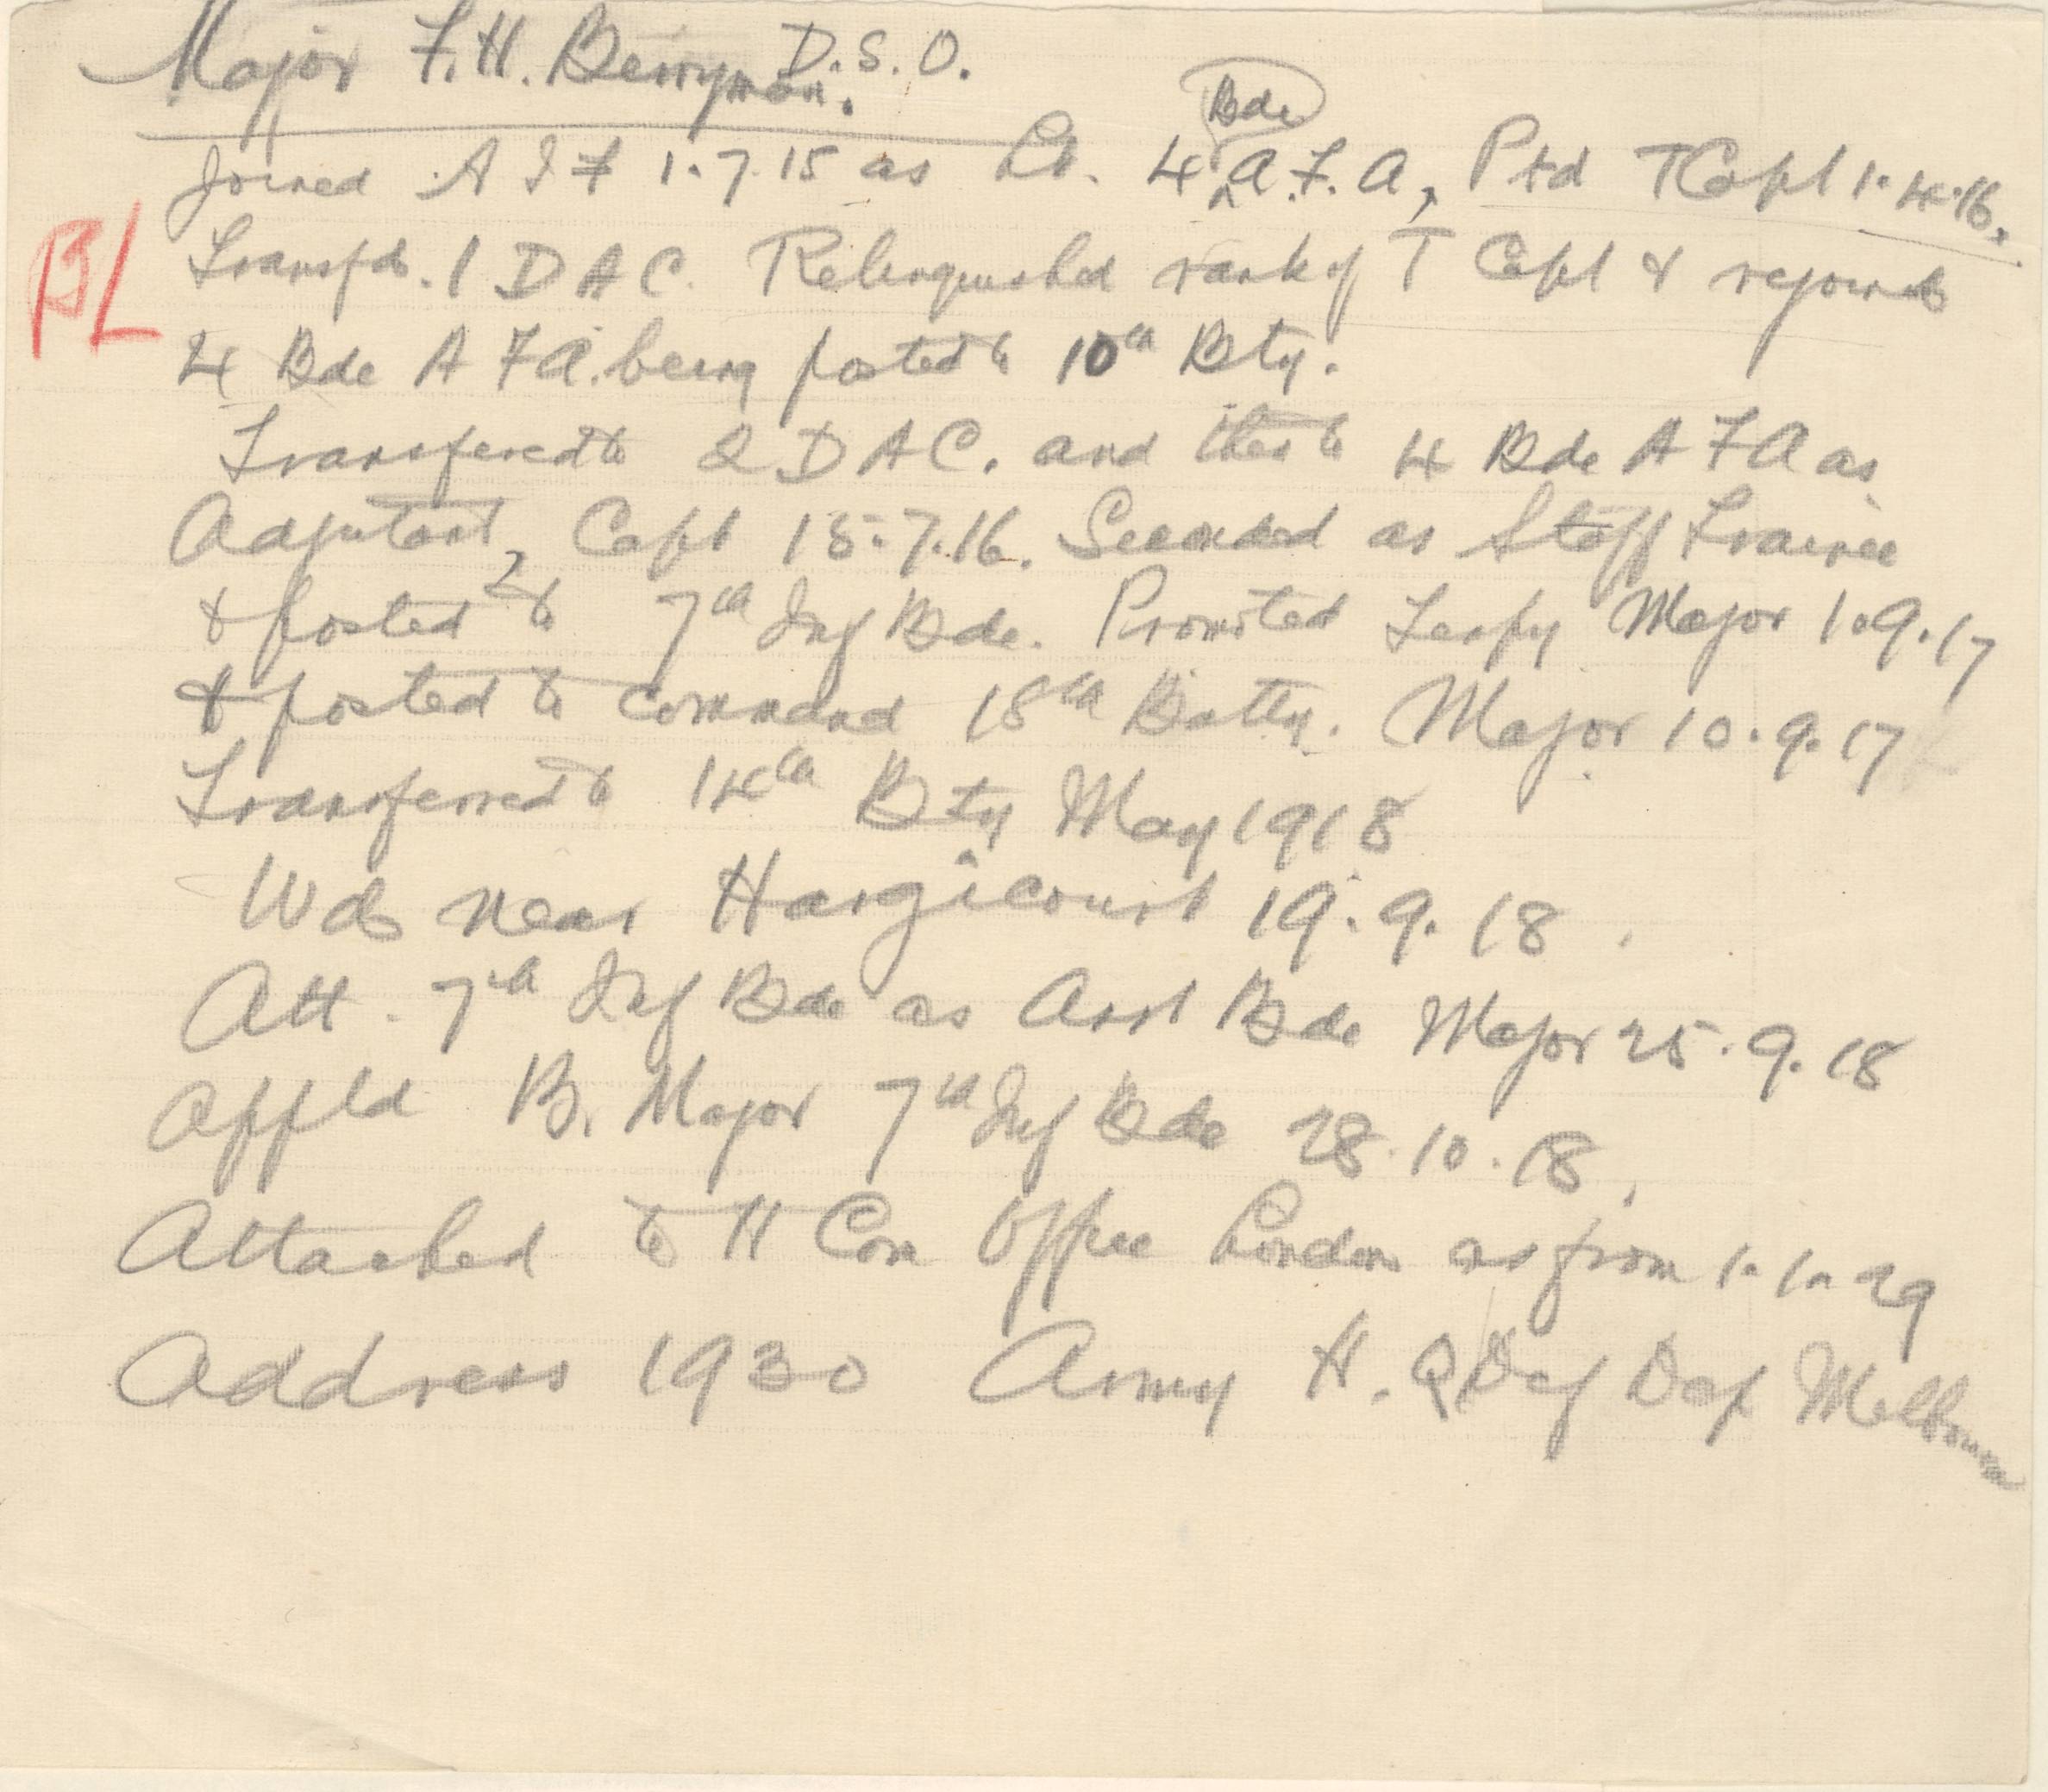 Major F. H. Berryman. D.S.O.
Joined A I F 1.7.15 as Lt. 4 Bde A.F.A, Ptd T Capt 1.4.16.
BL
Transfd. 1 D A C. Relinquished rank of T Capt & rejoined
4 Bde A F A. being posted to 10th Bty.
Transfered to 2 D A C. and then to 4 Bde A F A as
Adjutant, Capt 15.7.16. Seconded as Staff Trainee
& posted to 7th Inf Bde. Promoted Tempy Major 1.9.17
& posted to command 18th Batty. Major 10.9.17
Transferred to 14th Bty May 1918
Wd near Hargicourt 19.9.18.
Att. 7th Inf Bde as Asst Bde Major 25.9.18
Apptd B. Major 7th Inf Bde 28.10.18.
Attached to H Com Office London as from 1.1.29
Address 1930 Army H.Q Def Dep Melbourne